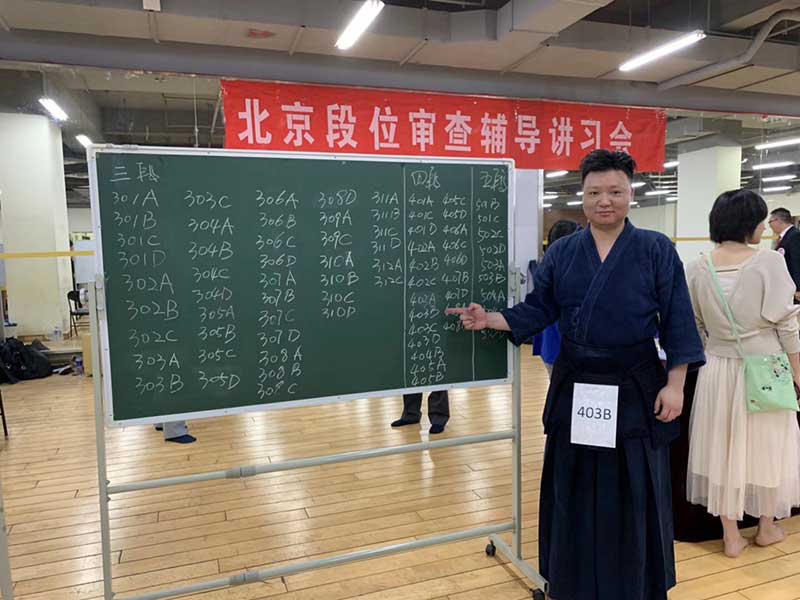 北京段位审查辅导讲习会
三段
301A
301B
301C
301D
302A
302B
302C
303A
303B
303C
304A
304B
304C
304D
305A
305B
305C
305D
306A
306B
306C
306D
307A
307B
307C
307D
308A
308B
308C
308D
309A
309C
310A
310B
310C
310D
311A
311B
311C
311D
312A
312C
四段
401A
401C
401D
402A
402B
402C
403A
403B
403C
403D
404B
405A
405B
405C
405D
406A
406C
406D
407B
407D
五段
501B
501C
502C
502D
503A
503B
504A
403B